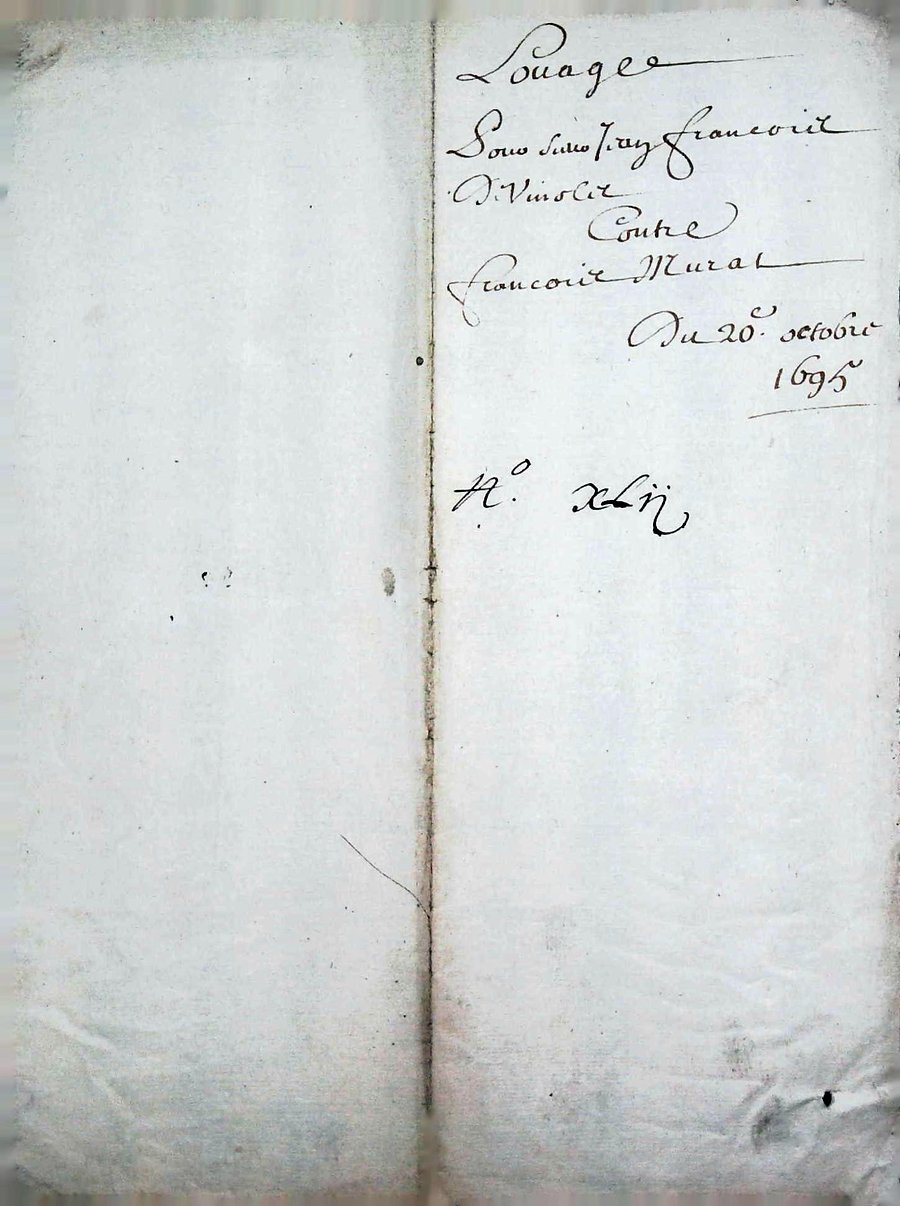 Louagee
Pour sieur Jean francoiis
DeVinolis
Contre
francoiis Murat
Du 20e. octobre
1695
No. XLij